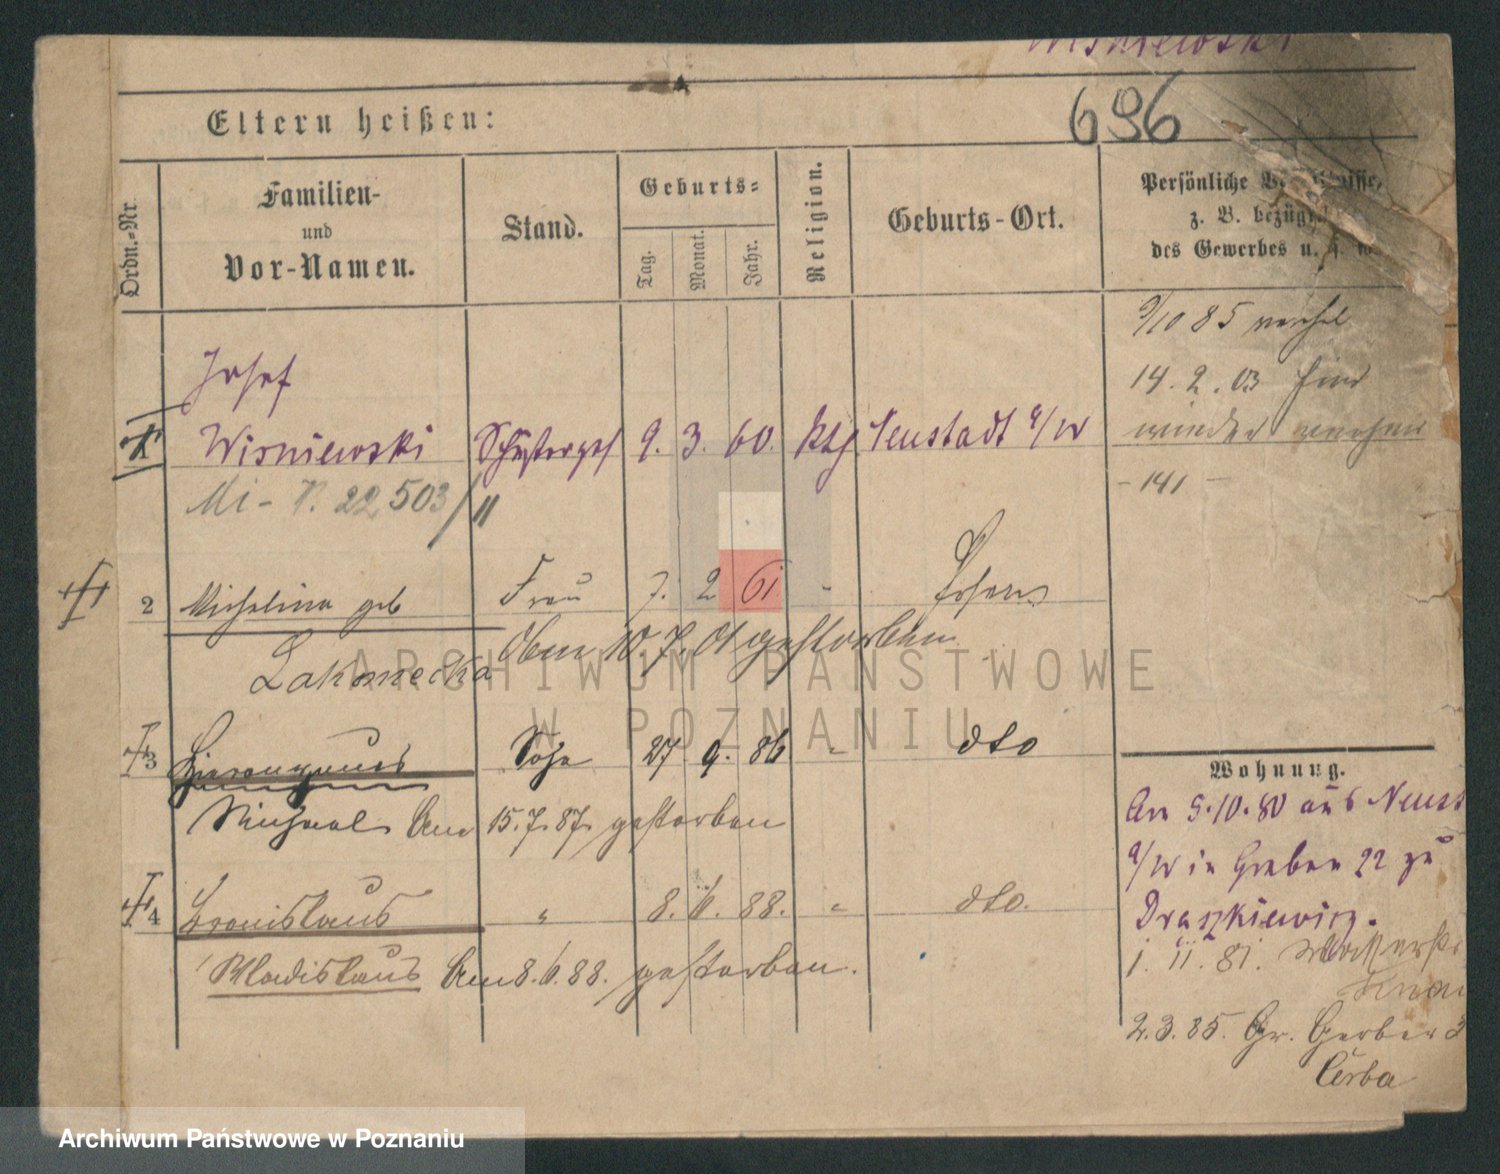 Wisniewski
696
Eltern heißen:
Ordn.-Nr.
Familien-
und
Vor-Namen.
Stand.
Geburts-
Tag.
Monat.
Jahr.
Religion.
Geburts-Ort.
Persönliche
z. B.
des Gewerbes u.
9/10 85 verehel
14. 2. 03
wieder
- 141 -
Josef
Wisniewski Schusterges 9. 3. 60. Ktg Neustadt a/W
Mi - V. 22503/11
2 Michalina geb Frau 7. 2 61 - Posen
Oben 10. 7. 01 gestorben
3 Hieronymus Sohn 27 9. 86 - dto
Michael Am 15. 7. 87 gestorben
4 Bronislaus " 8. 6. 88. - dto.
Wladislaus Am 8. 6. 88. gestorben.
Wohnung.
An 5. 10. 80 aus Neust
a/W in Graben 22 zu
Draszkiewicz.
1. 11. 81.
2. 3. 85. Gr. Gerber 3
ARCHIWUM PAŃSTWOWE
W POZNANIU
Archiwum Państwowe w Poznaniu